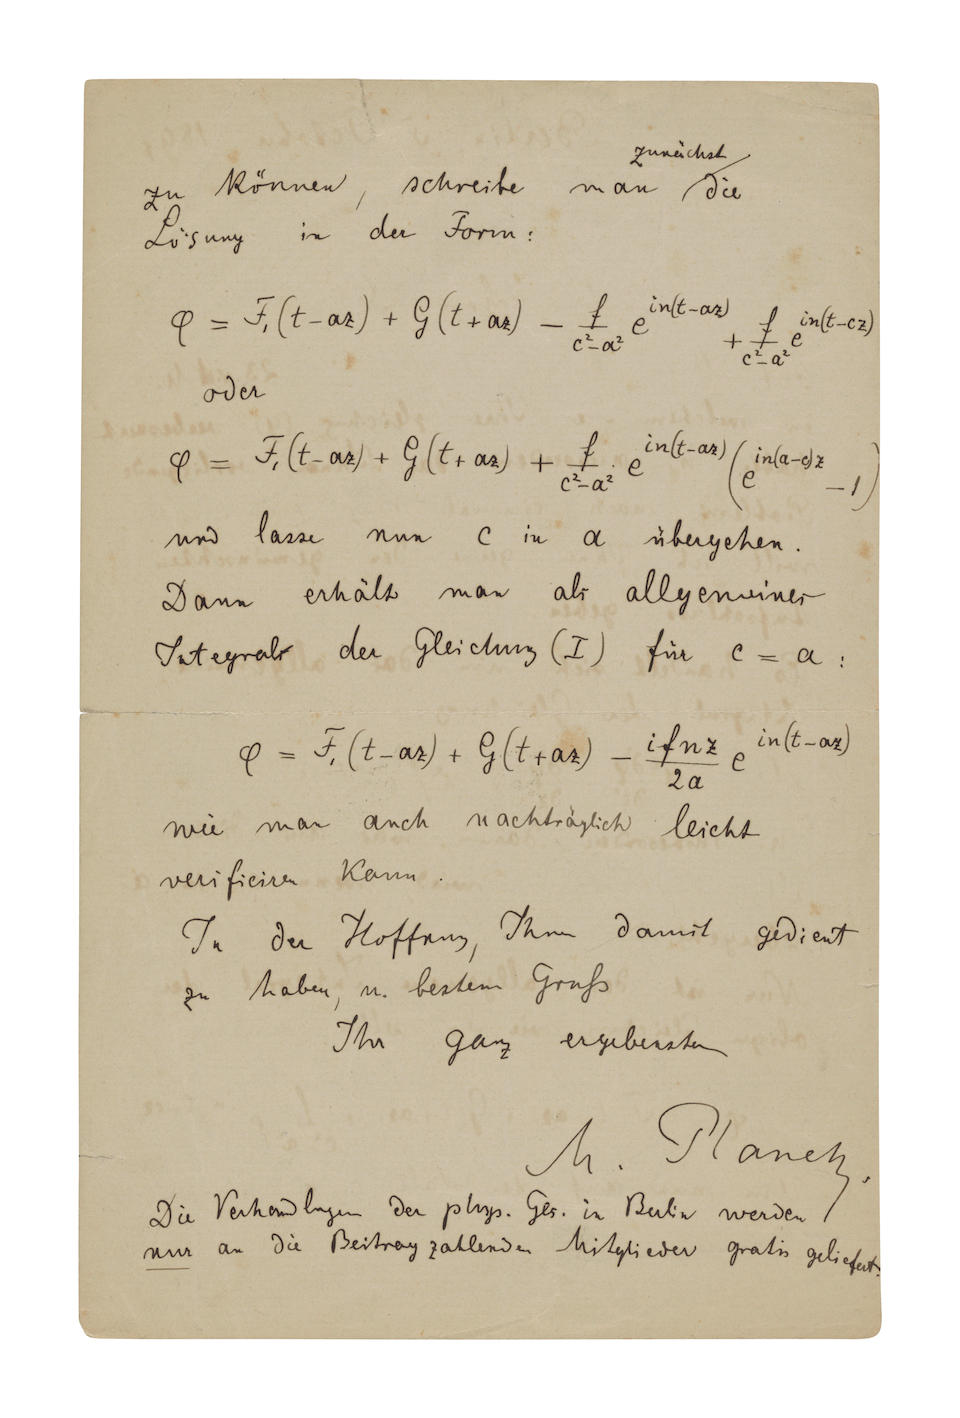 zu können, schreibe man zunächst die
Lösung in der Form:
φ = F₁(t−az) + G(t+az) − f/(c²−a²) e^{in(t−az)} + f/(c²−a²) e^{in(t−cz)}
oder
φ = F₁(t−az) + G(t+az) + f/(c²−a²) · e^{in(t−az)} (e^{in(a−c)z} − 1)
und lasse nun c in a übergehen.
Dann erhält man als allgemeines
Integral der Gleichung (I) für c = a:
φ = F₁(t−az) + G(t+az) − ifnz/2a e^{in(t−az)}
wie man auch nachträglich leicht
verificiren kann.
In der Hoffnung, Ihnen damit gedient
zu haben, u. bestem Gruß
Ihr ganz ergebenster
M. Planck.
Die Verhandlungen der phys. Ges. in Berlin werden
nur an die Beitrag zahlenden Mitglieder gratis geliefert.